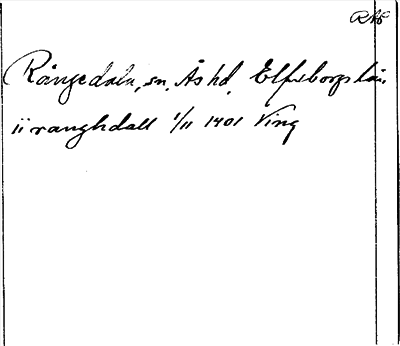 RAP
Rångedala, sn. Ås hd. Elfsborgs län.
ii ranghdall 1/11 1401 Ving